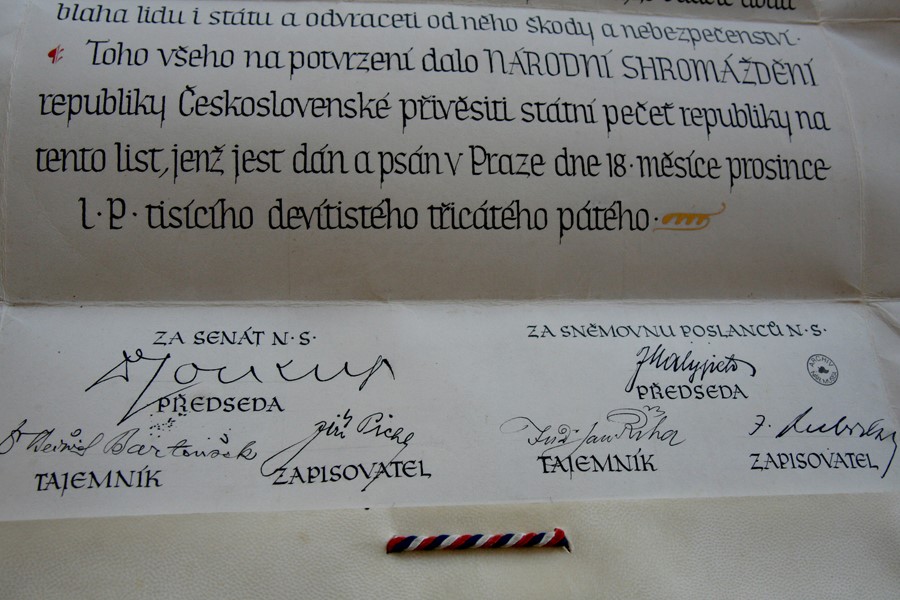 blaha lidu i státu a odvraceti od něho škody a nebezpečenství.
Toho všeho na potvrzení dalo NÁRODNÍ SHROMÁŽDĚNÍ
republiky Československé přivěsiti státní pečeť republiky na
tento list, jenž jest dán a psán v Praze dne 18. měsíce prosince
l. P. tisícího devítistého třicátého pátého.
ZA SENÁT N. S.
ZA SNĚMOVNU POSLANCŮ N. S.
Dr Soukup
JMalypetr
PŘEDSEDA
PŘEDSEDA
Bartoušek
Jiří Pichl
Jan Říha
TAJEMNÍK
ZAPISOVATEL
TAJEMNÍK
ZAPISOVATEL